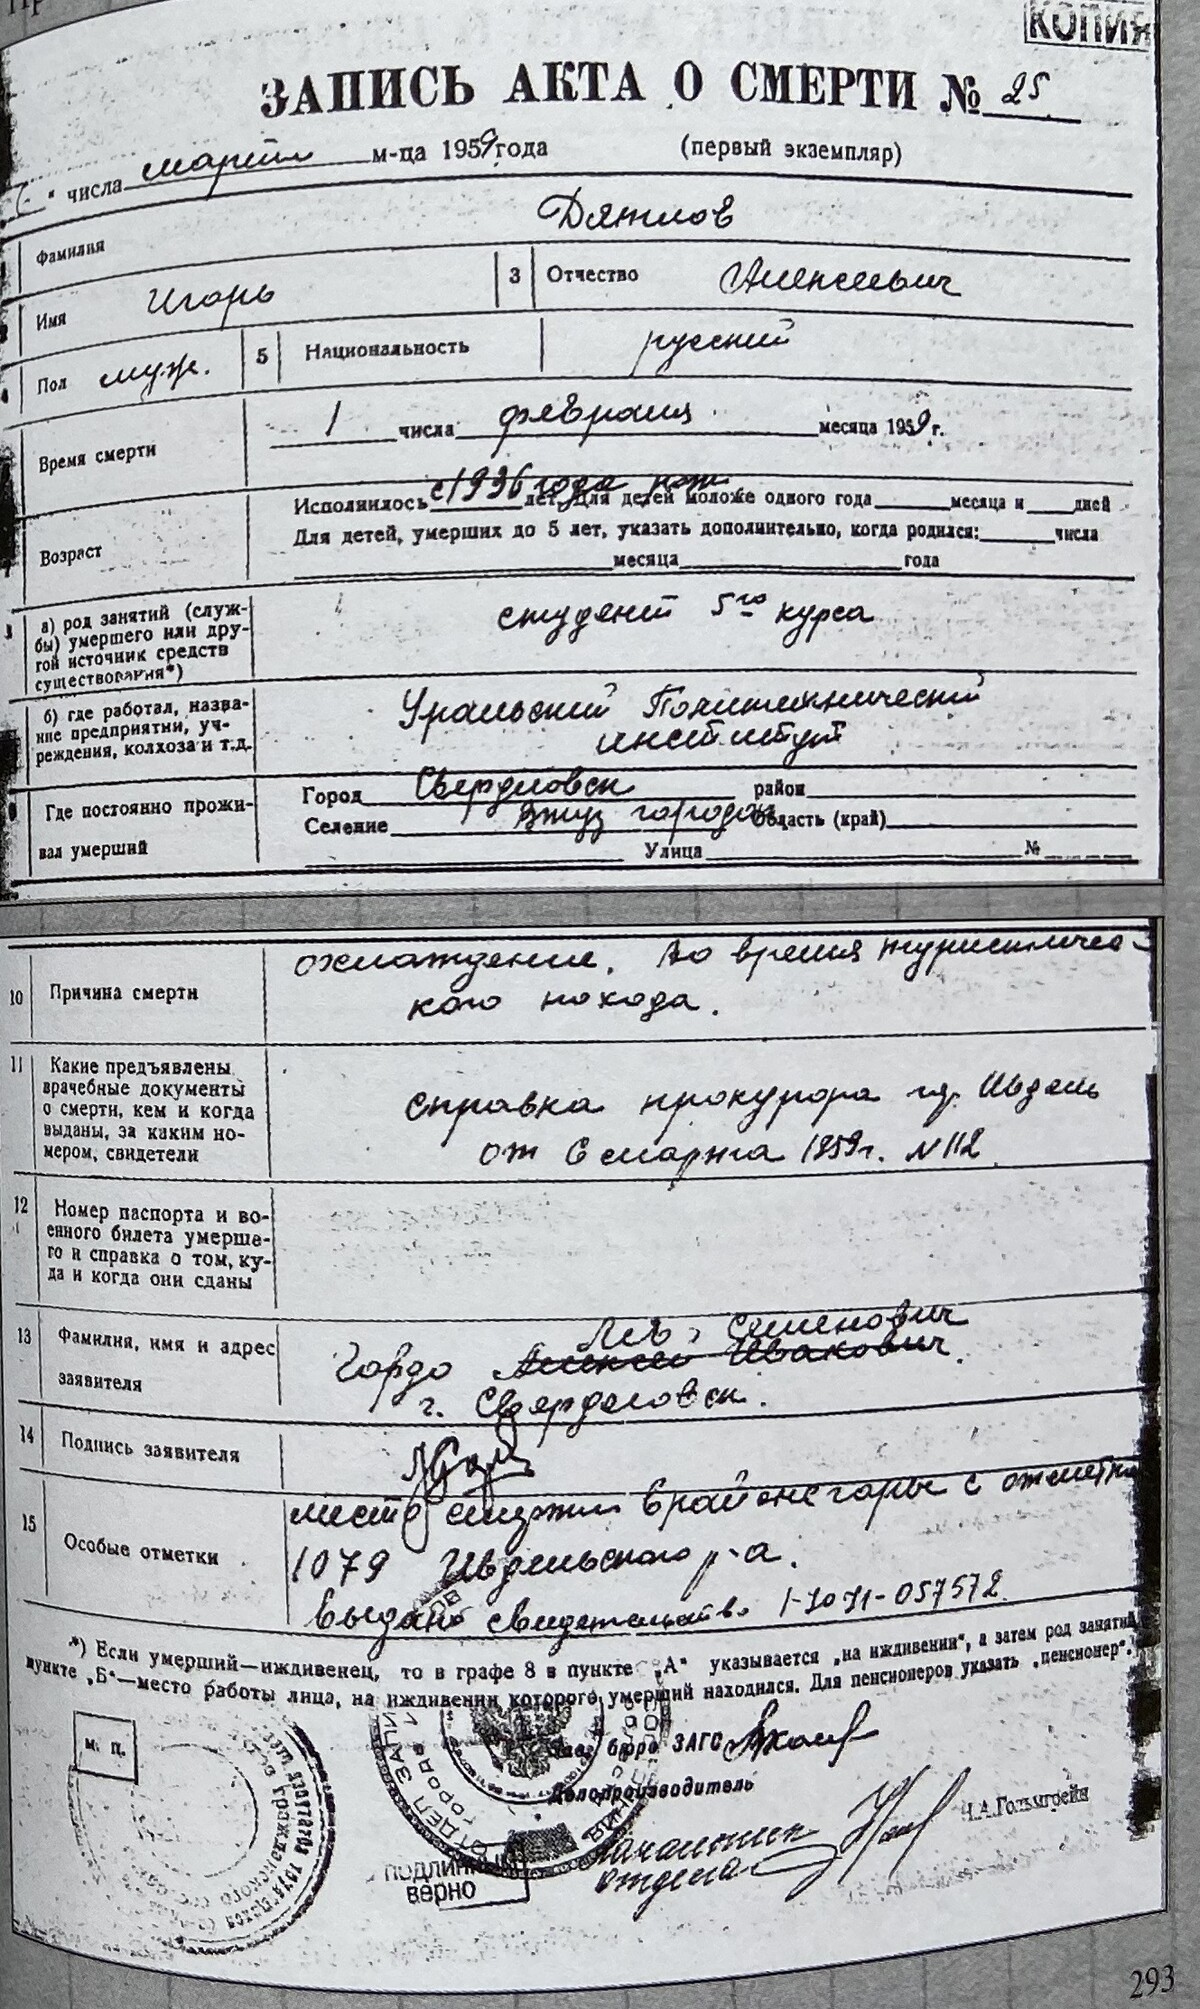 КОПИЯ
ЗАПИСЬ АКТА О СМЕРТИ № 25
" числа март м-ца 1959 года (первый экземпляр)
Фамилия Дятлов
Имя Игорь 3 Отчество Алексеевич
4 Пол муж. 5 Национальность русский
Время смерти 1 числа февраля месяца 1959 г.
Исполнилось с 1936 года рож лет. Для детей моложе одного года месяца и дней
Возраст Для детей, умерших до 5 лет, указать дополнительно, когда родился: числа
месяца года
а) род занятий (служ-
бы) умершего или дру-
гой источник средств
существования*)
студент 5го курса
б) где работал, назва-
ние предприятии, уч-
реждения, колхоза и т.д.
Уральский Политехнический
институт
Где постоянно прожи-
вал умерший
Город Свердловск район
Селение Втуз городок Область (край)
Улица №
10 Причина смерти
охлаждение. Во время туристичес-
кого похода.
11 Какие предъявлены
врачебные документы
о смерти, кем и когда
выданы, за каким но-
мером, свидетели
справка прокурора гор. Ивдель
от 6 марта 1959г. N 112
12 Номер паспорта и во-
енного билета умерше-
го и справка о том, ку-
да и когда они сданы
13 Фамилия, имя и адрес
заявителя
Лев Семенович
Гордо Алексей Иванович.
г. Свердловск.
14 Подпись заявителя
15 Особые отметки
место смерти в районе горы с отметки
1079 Ивдельского р-а.
Выдано свидетельство 1-10-71-057572
*) Если умерший—иждивенец, то в графе 8 в пункте „А“ указывается „на иждивении“, а затем род занятий
пункте „Б“—место работы лица, на иждивении которого умерший находился. Для пенсионеров указать „пенсионер“.
м. п.
Зав. бюро ЗАГС
Делопроизводитель
ОТДЕЛ ЗАПИ
ГОРОДА
ПОДЛИННЫМ
ВЕРНО
начальник
отдела
Н.А.Гольмгрейн
293